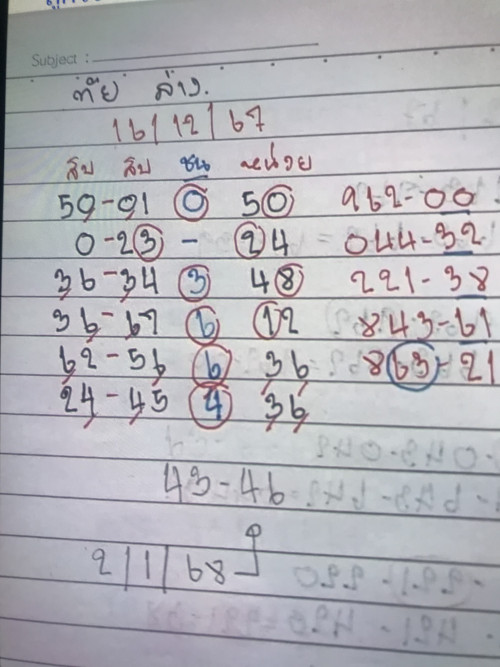 Subject :
ท้าย ล่าง.
16/12/67
สิบ สิบ ชน หน่วย
50-01 0 50 962-00
0-23 - 24 044-32
36-34 3 48 221-38
36-67 6 12 843-61
62-56 6 36 863-21
24-45 4 36
43-46
2/1/68